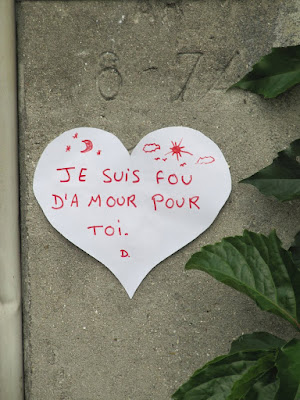 8-74
JE SUIS FOU
D'A MOUR POUR
TOI.
D.